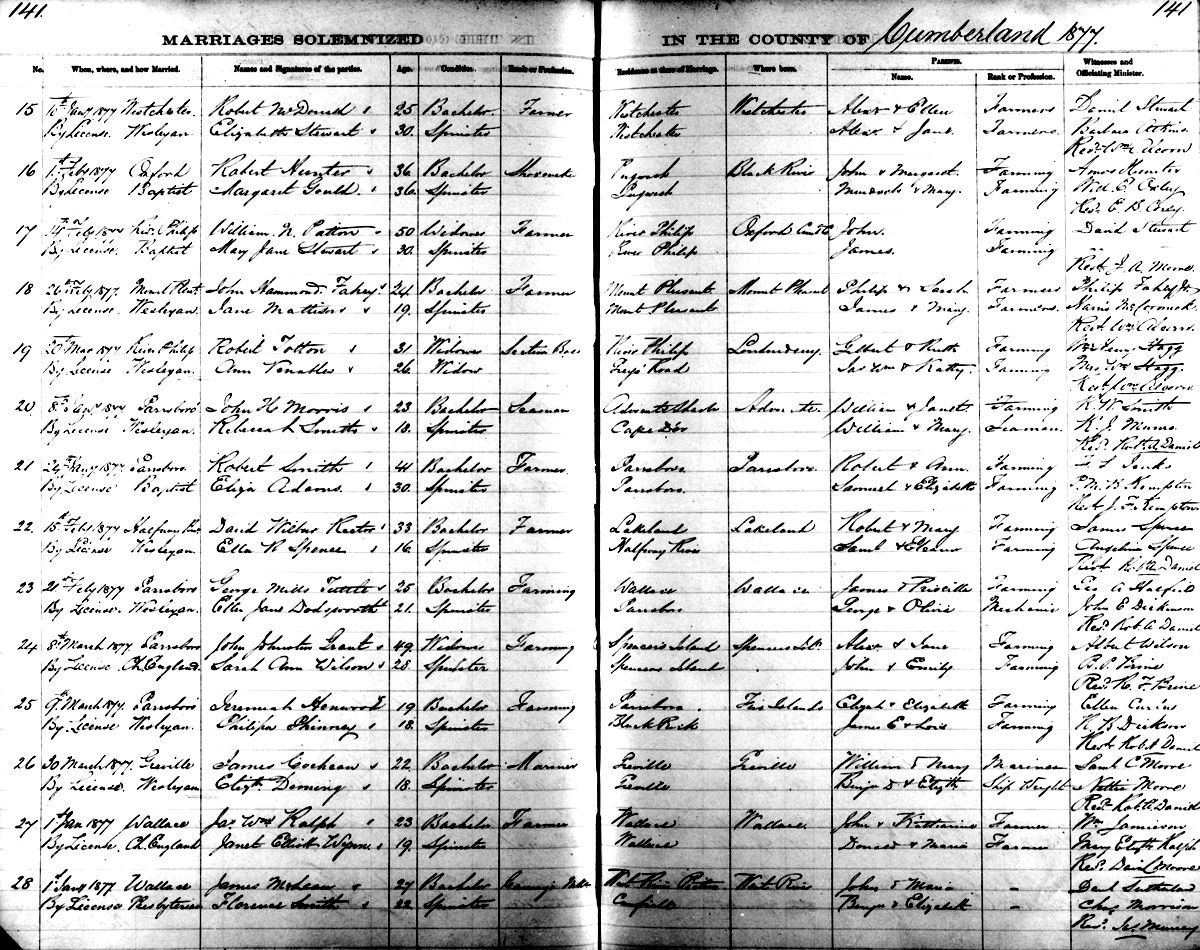 141. 141
MARRIAGES SOLEMNIZED IN THE COUNTY OF Cumberland 1877.
No. When, where, and how Married. Names and Signatures of the parties. Age. Condition. Rank or Profession. Residence at time of Marriage. Where born. PARENTS. Witnesses and
Name. Rank or Profession. Officiating Minister.
15 Jany 1877 Westchester. Robert McDonald 25 Bachelor. Farmer Westchester Westchester Alexr & Ellen Farmers Daniel Stewart
By License. Wesleyan Elizabeth Stewart 30. Spinster Westchester Alexr & Jane. Farmers. Barbara Atkins
Revd. Wm Alcorn
16 Feby 1877 Oxford Robert Hunter 36. Bachelor Pugwash Black River John & Margaret. Farming Amos Hunter
By License Baptist Margaret Gould. 36. Spinster Pugwash Murdoch & Mary. Farming Will E
Revd. E. B.
17 Feby 1877 River Philip William N. Patton 50 Widower Farmer River Philip Oxford John. Farming David Stewart
By License. Baptist Mary Jane Stewart 30. Spinster River Philip James. Farming
Revd. J. A. Moore.
18 26th Feby 1877. Mount Pleast John Hammond Fahey 24. Bachelor Farmer Mount Pleasant Mount Pleasant Philip & Sarah Farmers Philip Fahey
By License. Wesleyan. Jane Mathers 19. Spinster Mount Pleasant James & Mary. Farmers. McCormack
Revd. Wm Alcorn.
19 20th Mar 1877 River Philip Robert Totton 31 Widower Section Boss River Philip Londonderry. Gilbert & Ruth Farming Stagg
By License Wesleyan. Ann Venables 26. Widow Greys Road Jas Wm & Katty. Farming Mrs. Wm Stagg.
Revd. Wm Alcorn
20 8th Jany 1877 Parrsboro John H Morris 23 Bachelor Seaman Advocate Harbor Advocate. William & Janet Farming R. W. Smith
By License Wesleyan. Rebecca Smith 18. Spinster Cape D'or William & Mary. Seaman. K. J. Munro
Revd. Robt A. Daniel
21 24th Jany 1877 Parrsboro. Robert Smith 41 Bachelor Farmer Parrsboro. Parrsboro. Robert & Ann. Farming F. L. Jenks
By License Baptist Eliza Adams. 30. Spinster Parrsboro. Samuel & Elizabeth Farming Kempton
Revd. J. F. Kempton
22. 15th Feby 1877 Halfway River David Wilbur Rector 33 Bachelor Farmer Lakeland Lakeland Robert & Mary Farming James Spence
By License Wesleyan. Ella R. Spence 16. Spinster Halfway River Saml & Eleanor Farming Angelina Spence
Revd. R. A. Daniel
23 21st Feby 1877 Parrsboro George Mills Tuttle 25 Bachelor Farming Wallace Wallace James & Priscilla Farming Geo A Hatfield
By License. Wesleyan. Ellen Jane Dodsworth 21. Spinster Parrsboro George & Olivia Mechanic John E Dickinson
Revd. Robt A. Daniel
24 8th March 1877 Parrsboro John Johnston Grant 49. Widower Farming Spencers Island Spencers Isld. Alexr & Jane Farming Albert Wilson
By License. Ch. England. Sarah Ann Wilson 28. Spinster Spencers Island John & Emily Farming
Revd. R. F. Brine
25 9th March 1877. Parrsboro Jeremiah Henwood 19 Bachelor Farming Parrsboro. Five Islands Elijah & Elizabeth Farming Ellen
By License Wesleyan. Philipa Phinney 18. Spinster Black Rock James E & Lois Farming K. B. Dickson
Revd. Robt A. Daniel
26 30 March 1877. Greville James Cochran 22. Bachelor Mariner Greville Greville William & Mary Mariner Saml C. Moore
By License Wesleyan Elizth Deming 18. Spinster Greville Benjn D & Elizth Ship Wright Nettie Moore
Revd. Robt A. Daniel
27 1st Jan 1877 Wallace Jas Wm Ralph 23 Bachelor Farmer Wallace Wallace. John & Katharine Farmer Wm. Jamieson
By License. Ch. England Janet Elliot 19. Spinster Wallace Donald & Maria Farmer Mary Elizth Ralph
Revd. David Moore
28 1st Jany 1877 Wallace James McLean 27 Bachelor West River West River John & Maria - Danl Sutherland
By License Presbyterian Florence Smith 22 Spinster Benjn & Elizabeth - Chas Morrison
Revd. Jas Murray